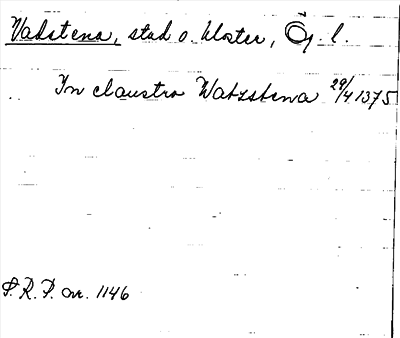 Vadstena, stad o. kloster, Ög. l.
In claustro Watzstena 29/4 1375
S.R.P. nr. 1146